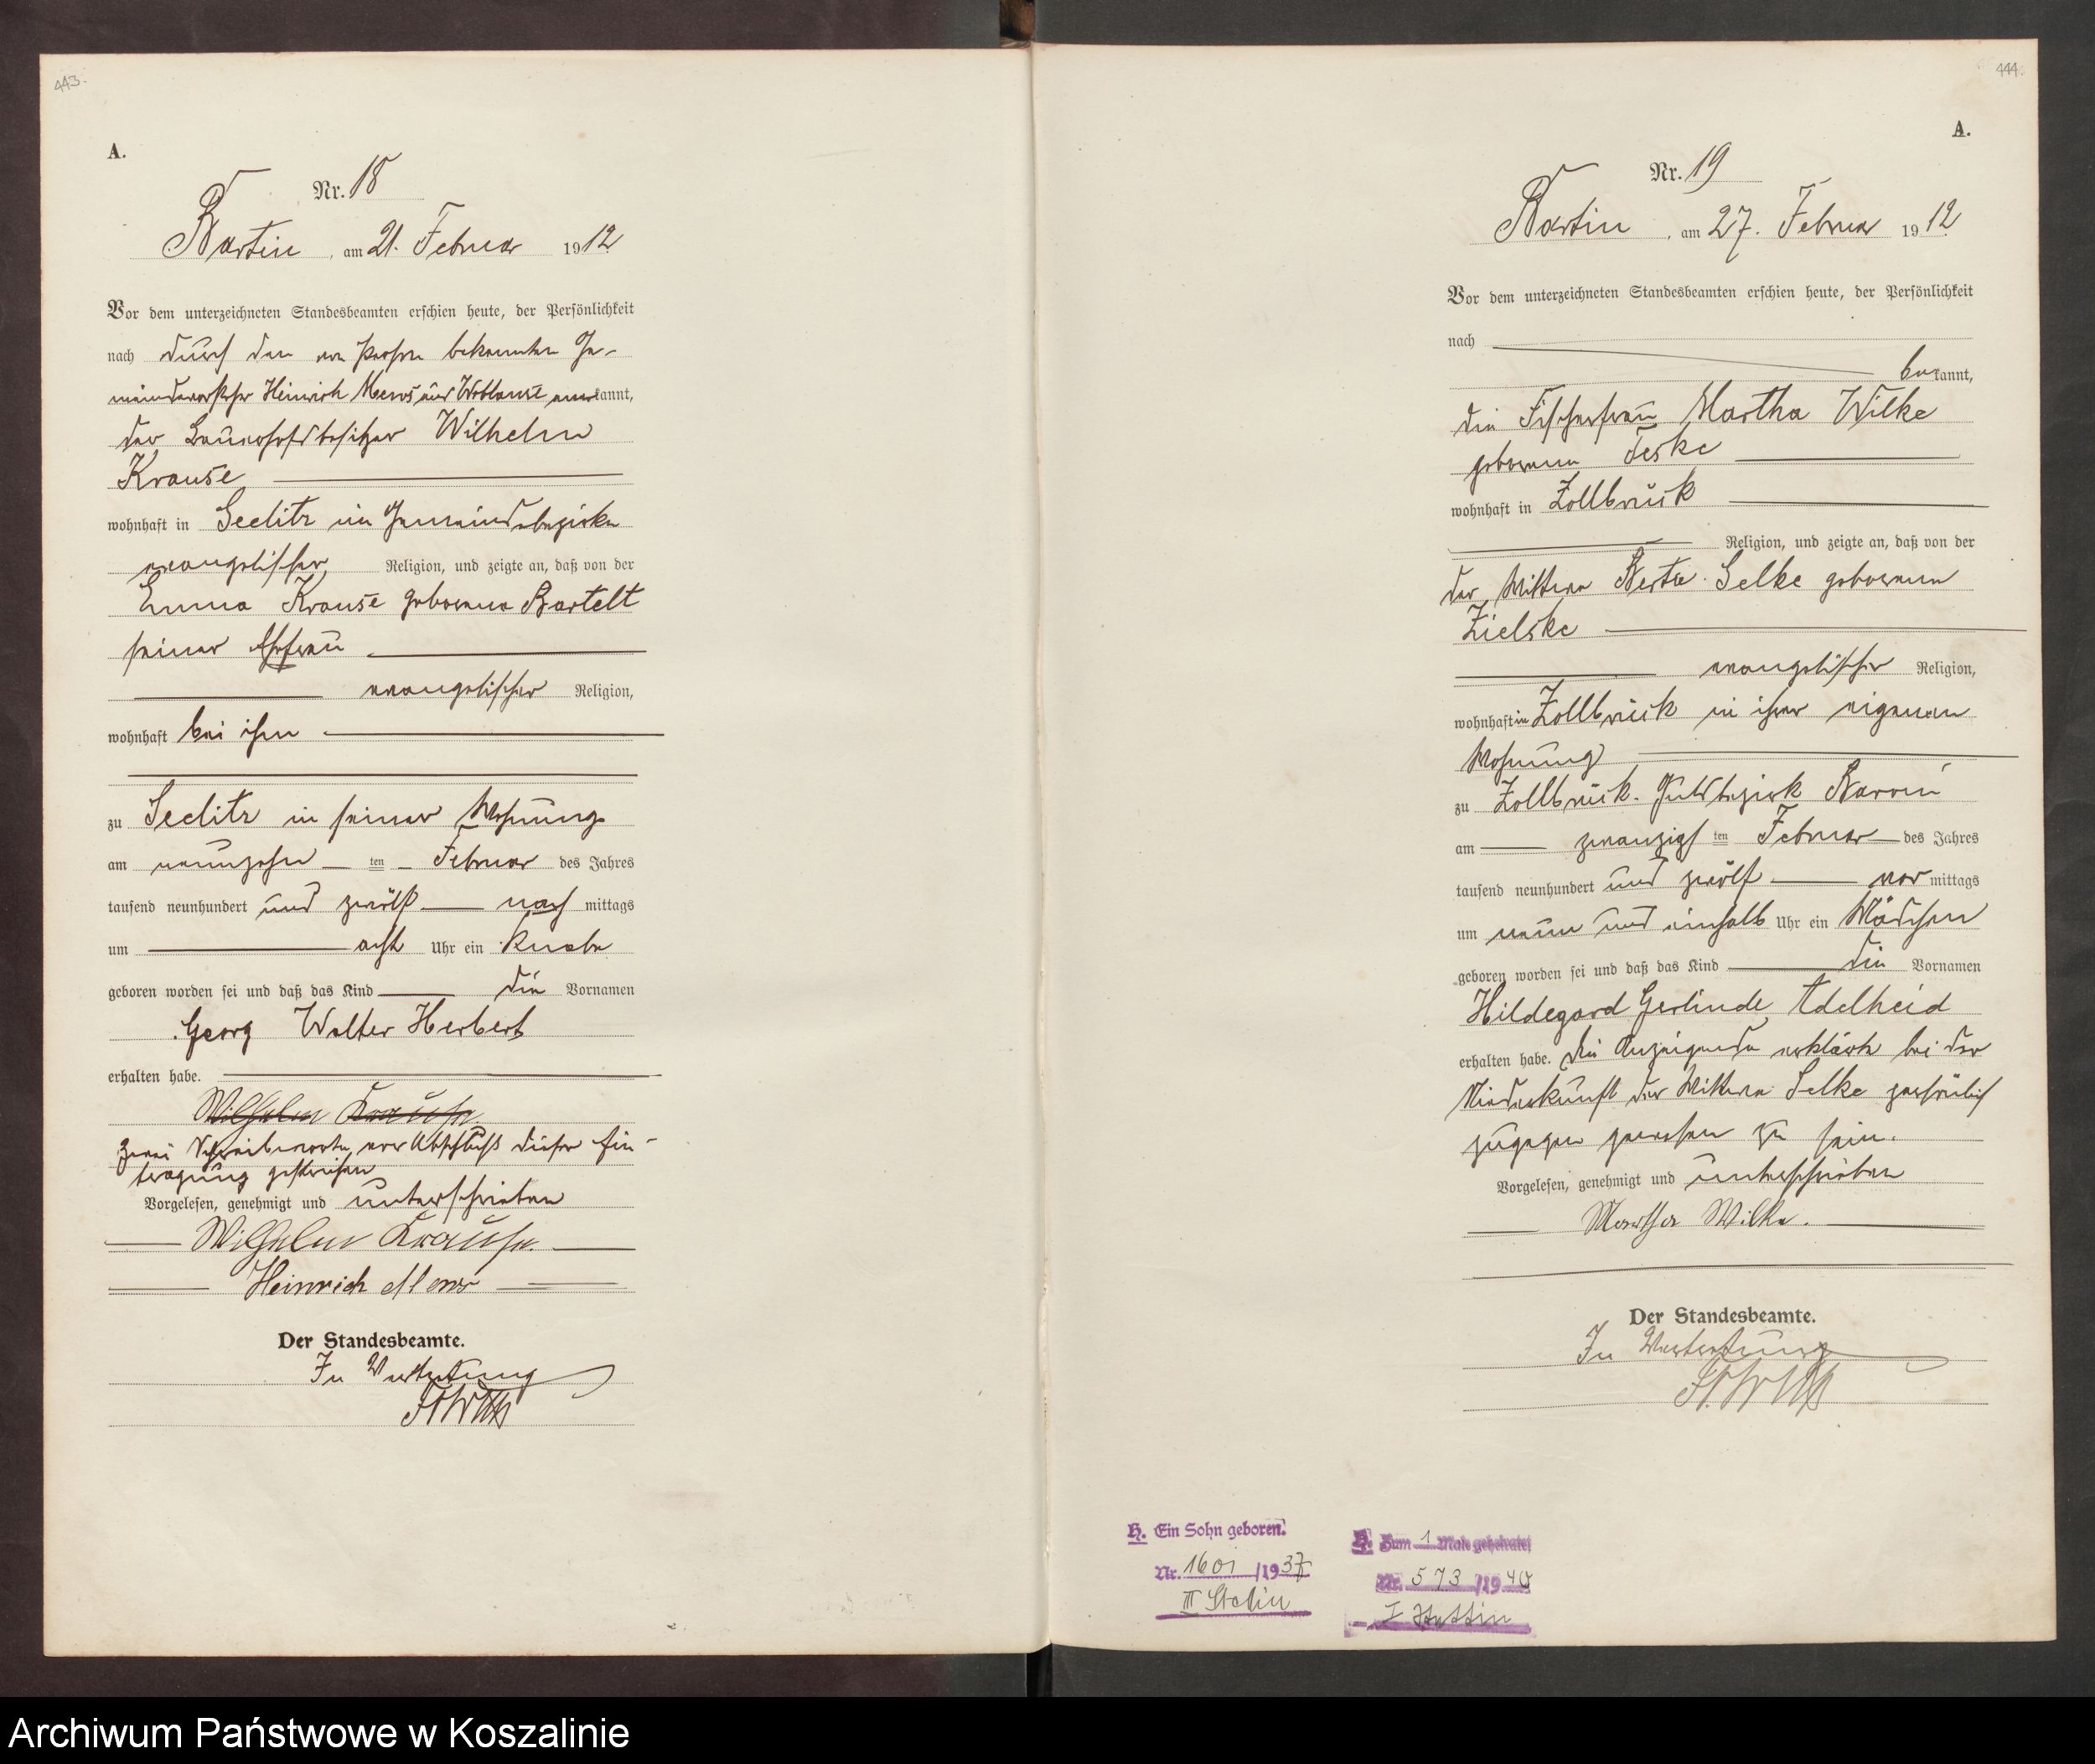 443.
A.
Nr. 18
Bartin, am 21. Februar 1912
Vor dem unterzeichneten Standesbeamten erschien heute, der Persönlichkeit
nach durch den von Person bekannten Ge-
meindevorsteher Heinrich Mews aus Woblanse anerkannt,
der Bauerhofsbesitzer Wilhelm
Krause
wohnhaft in Seelitz im Gemeindebezirke
evangelischer Religion, und zeigte an, daß von der
Emma Krause geborene Bartelt
seiner Ehefrau
evangelischer Religion,
wohnhaft bei ihm
zu Seelitz in seiner Wohnung
am neunzehn ten Februar des Jahres
tausend neunhundert und zwölf nach mittags
um acht Uhr ein Knabe
geboren worden sei und daß das Kind die Vornamen
Georg Walter Herbert
erhalten habe.
Wilhelm Krause
Zwei Schreibworte vor Abschluß dieser Ein-
tragung gestrichen
Vorgelesen, genehmigt und unterschrieben
Wilhelm Krause.
Heinrich Mews
Der Standesbeamte.
In Vertretung
444.
A.
Nr. 19
Bartin, am 27. Februar 1912
Vor dem unterzeichneten Standesbeamten erschien heute, der Persönlichkeit
nach
bekannt,
die Fischerfrau Martha Wilke
geborene Teske
wohnhaft in Zollbrück
Religion, und zeigte an, daß von der
der Wittwe Berta Selke geborene
Zielske
evangelischer Religion,
wohnhaft in Zollbrück in ihrer eigenen
Wohnung
zu Zollbrück. Gutsbezirk Barvin
am zwanzigs ten Februar des Jahres
tausend neunhundert und zwölf vor mittags
um neun und einhalb Uhr ein Mädchen
geboren worden sei und daß das Kind die Vornamen
Hildegard Gerlinde Adelheid
erhalten habe. Die Anzeigende erklärte bei der
Niederkunft der Wittwe Selke persönlich
zugegen gewesen zu sein.
Vorgelesen, genehmigt und unterschrieben
Martha Wilke.
Der Standesbeamte.
In Vertretung
H. Ein Sohn geboren.
Nr. 1601 /1937
III Stettin
H. Zum 1 Male geheiratet
Nr. 573 /1940
I Stettin
Archiwum Państwowe w Koszalinie